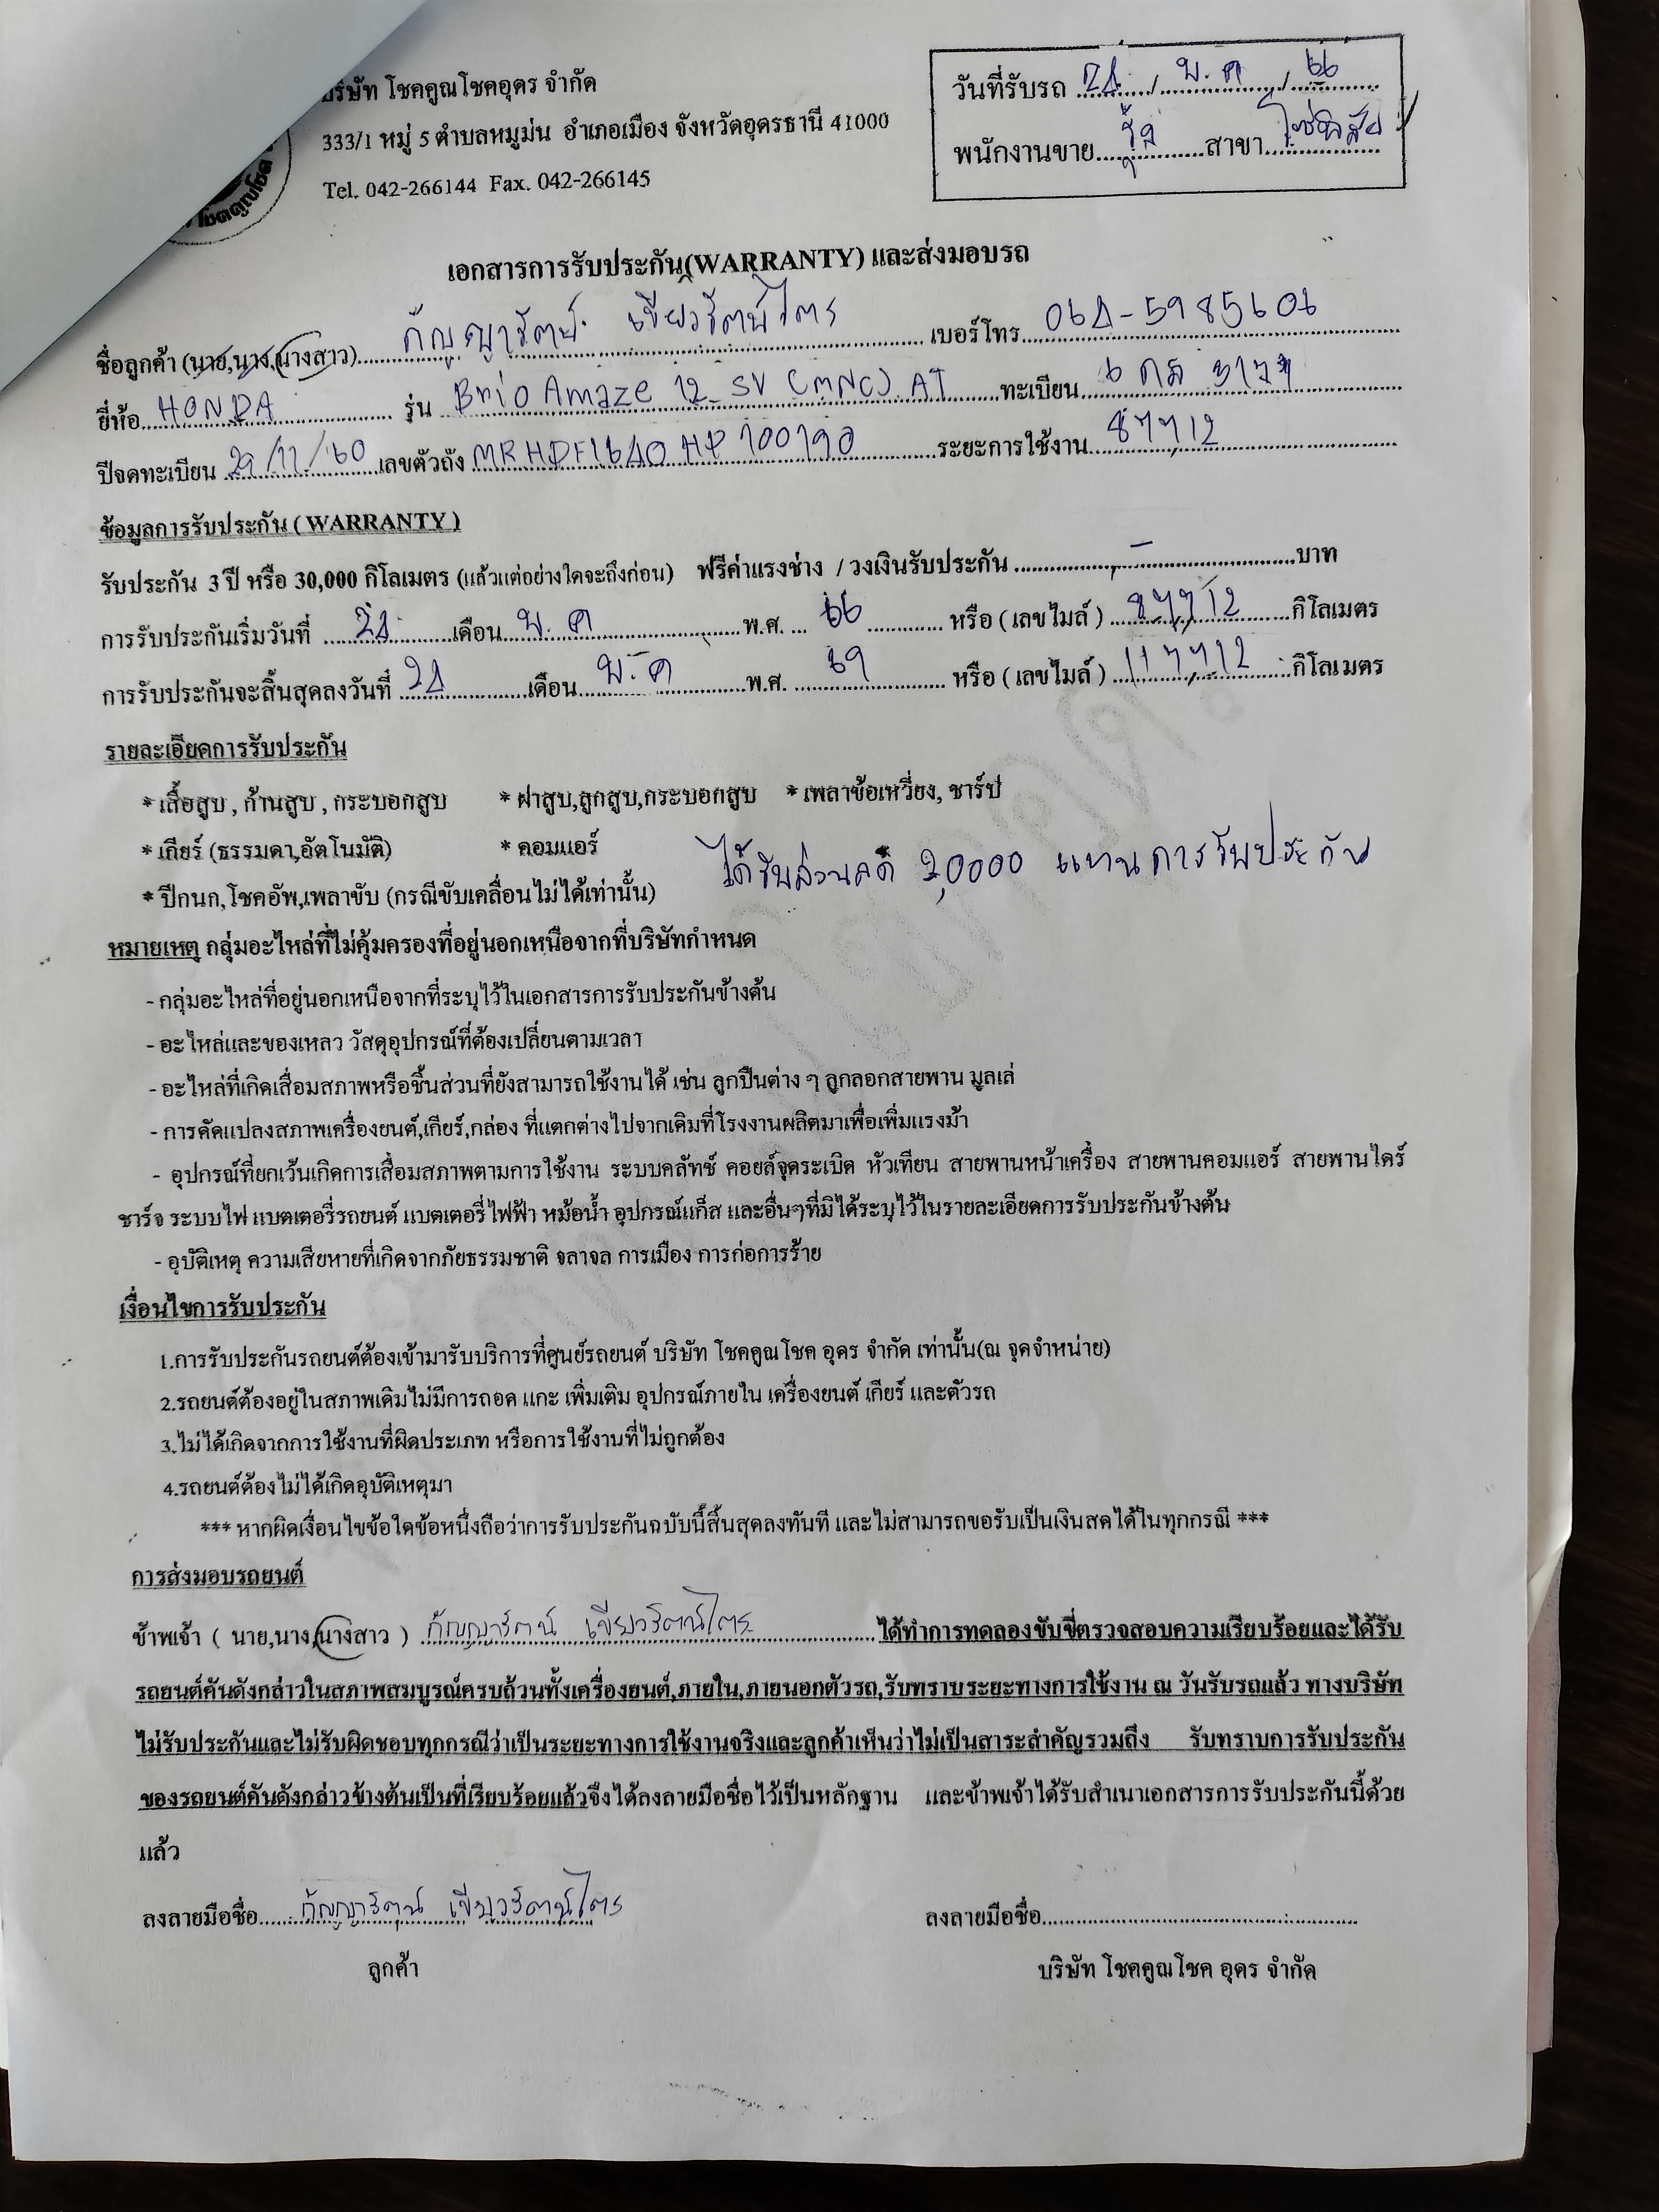 บริษัท โชคคูณโชคอุดร จำกัด
333/1 หมู่ 5 ตำบลหมูม่น อำเภอเมือง จังหวัดอุดรธานี 41000
Tel. 042-266144 Fax. 042-266145
โชคคูณโชค
วันที่รับรถ 24 / พ.ค / 66
พนักงานขาย สาขา โพนพิสัย
เอกสารการรับประกัน(WARRANTY) และส่งมอบรถ
ชื่อลูกค้า (นาย,นาง,นางสาว) กัญญารัตน์ เขียวรัตน์ไตร เบอร์โทร 064-5985606
ยี่ห้อ HONDA รุ่น Brio Amaze 12 SV (MNC) AT ทะเบียน 6 กส
ปีจดทะเบียน 29/11/60 เลขตัวถัง MRHDF1640HP100190 ระยะการใช้งาน 87,712
ข้อมูลการรับประกัน ( WARRANTY )
รับประกัน 3 ปี หรือ 30,000 กิโลเมตร (แล้วแต่อย่างใดจะถึงก่อน) ฟรีค่าแรงช่าง / วงเงินรับประกัน - บาท
การรับประกันเริ่มวันที่ 24 เดือน พ.ค พ.ศ. 66 หรือ ( เลขไมล์ ) 87,712 กิโลเมตร
การรับประกันจะสิ้นสุดลงวันที่ 24 เดือน พ.ค พ.ศ. 69 หรือ ( เลขไมล์ ) 117,712 กิโลเมตร
รายละเอียดการรับประกัน
* เสื้อสูบ , ก้านสูบ , กระบอกสูบ * ฝาสูบ,ลูกสูบ,กระบอกสูบ * เพลาข้อเหวี่ยง, ชาร์ป
* เกียร์ (ธรรมดา,อัตโนมัติ) * คอมแอร์ ได้รับส่วนลด 20000 แทนการรับประกัน
* ปีกนก,โชคอัพ,เพลาขับ (กรณีขับเคลื่อนไม่ได้เท่านั้น)
หมายเหตุ กลุ่มอะไหล่ที่ไม่คุ้มครองที่อยู่นอกเหนือจากที่บริษัทกำหนด
- กลุ่มอะไหล่ที่อยู่นอกเหนือจากที่ระบุไว้ในเอกสารการรับประกันข้างต้น
- อะไหล่และของเหลว วัสดุอุปกรณ์ที่ต้องเปลี่ยนตามเวลา
- อะไหล่ที่เกิดเสื่อมสภาพหรือชิ้นส่วนที่ยังสามารถใช้งานได้ เช่น ลูกปืนต่าง ๆ ลูกลอกสายพาน มูลเล่
- การดัดแปลงสภาพเครื่องยนต์,เกียร์,กล่อง ที่แตกต่างไปจากเดิมที่โรงงานผลิตมาเพื่อเพิ่มแรงม้า
- อุปกรณ์ที่ยกเว้นเกิดการเสื่อมสภาพตามการใช้งาน ระบบคลัทช์ คอยล์จุดระเบิด หัวเทียน สายพานหน้าเครื่อง สายพานคอมแอร์ สายพานไดร์
ชาร์จ ระบบไฟ แบตเตอรี่รถยนต์ แบตเตอรี่ไฟฟ้า หม้อน้ำ อุปกรณ์แก็ส และอื่นๆที่มิได้ระบุไว้ในรายละเอียดการรับประกันข้างต้น
- อุบัติเหตุ ความเสียหายที่เกิดจากภัยธรรมชาติ จลาจล การเมือง การก่อการร้าย
เงื่อนไขการรับประกัน
1.การรับประกันรถยนต์ต้องเข้ามารับบริการที่ศูนย์รถยนต์ บริษัท โชคคูณโชค อุดร จำกัด เท่านั้น(ณ จุดจำหน่าย)
2.รถยนต์ต้องอยู่ในสภาพเดิมไม่มีการถอด แกะ เพิ่มเติม อุปกรณ์ภายใน เครื่องยนต์ เกียร์ และตัวรถ
3.ไม่ได้เกิดจากการใช้งานที่ผิดประเภท หรือการใช้งานที่ไม่ถูกต้อง
4.รถยนต์ต้องไม่ได้เกิดอุบัติเหตุมา
*** หากผิดเงื่อนไขข้อใดข้อหนึ่งถือว่าการรับประกันฉบับนี้สิ้นสุดลงทันที และไม่สามารถขอรับเป็นเงินสดได้ในทุกกรณี ***
การส่งมอบรถยนต์
ข้าพเจ้า ( นาย,นาง,นางสาว ) กัญญารัตน์ เขียวรัตน์ไตร ได้ทำการทดลองขับขี่ตรวจสอบความเรียบร้อยและได้รับ
รถยนต์คันดังกล่าวในสภาพสมบูรณ์ครบถ้วนทั้งเครื่องยนต์,ภายใน,ภายนอกตัวรถ,รับทราบระยะทางการใช้งาน ณ วันรับรถแล้ว ทางบริษัท
ไม่รับประกันและไม่รับผิดชอบทุกกรณีว่าเป็นระยะทางการใช้งานจริงและลูกค้าเห็นว่าไม่เป็นสาระสำคัญรวมถึง รับทราบการรับประกัน
ของรถยนต์คันดังกล่าวข้างต้นเป็นที่เรียบร้อยแล้วจึงได้ลงลายมือชื่อไว้เป็นหลักฐาน และข้าพเจ้าได้รับสำเนาเอกสารการรับประกันนี้ด้วย
แล้ว
ลงลายมือชื่อ กัญญารัตน์ เขียวรัตน์ไตร ลงลายมือชื่อ
ลูกค้า บริษัท โชคคูณโชค อุดร จำกัด